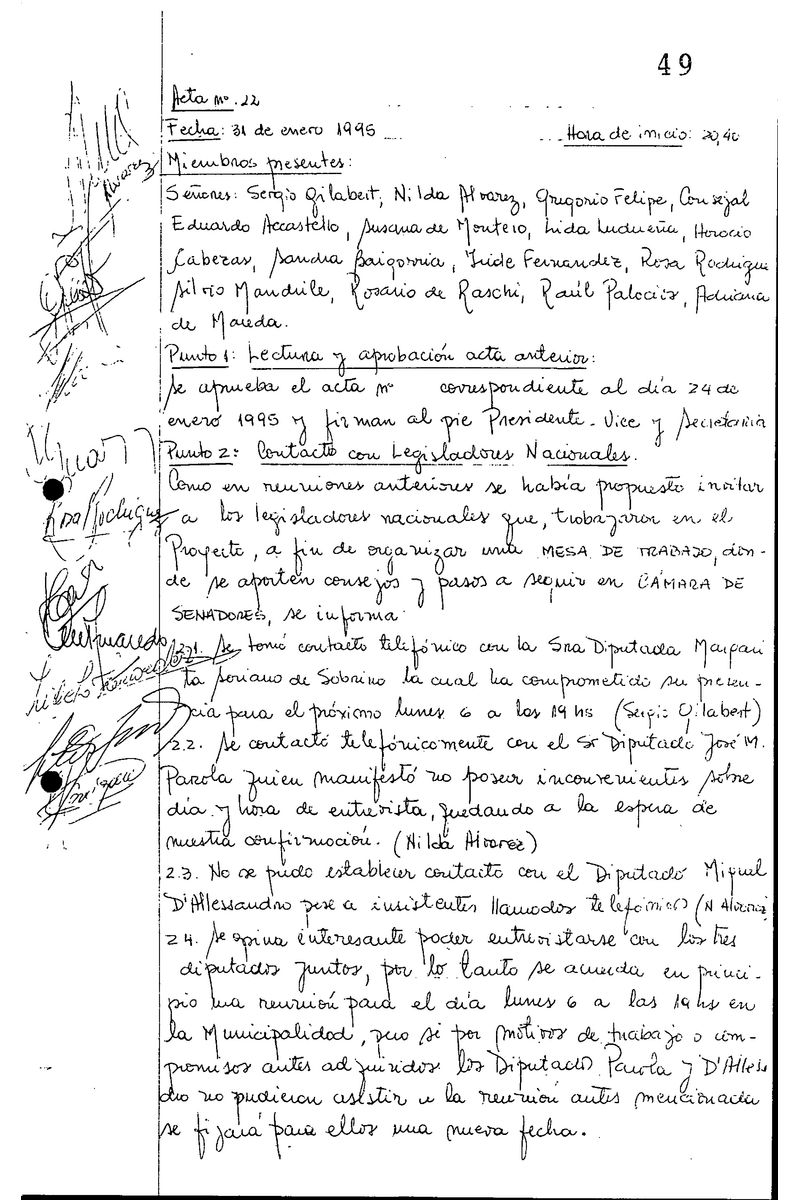 49
Acta nº. 22
Fecha: 31 de enero 1995 Hora de inicio: 20,40
Miembros presentes:
Señores: Sergio Gilabert, Nilda Alvarez, Gregorio Felipe, Consejal
Eduardo Accastello, Susana de Montero, Lida Ludueña, Horacio
Cabezas, Sandra Baigorria, Fernandez, Rosa Rodrigue
Silvio Mandrile, Rosario de Raschi, Raúl Palacios, Adriana
de Maieda.
Punto 1: Lectura y aprobación acta anterior:
Se aprueba el acta nº correspondiente al día 24 de
enero 1995 y firman al pie Presidente - Vice y Secretaria
Punto 2: Contacto con Legisladores Nacionales.
Como en reuniones anteriores se había propuesto invitar
a los legisladores nacionales que, trabajaron en el
Proyecto, a fin de organizar una MESA DE TRABAJO, don-
de se aporten consejos y pasos a seguir en CÁMARA DE
SENADORES, se informa:
2.1. Se tomó contacto telefónico con la Sra Diputada Margari
ta Soriano de Sobrino la cual ha comprometido su presen-
cia para el próximo lunes 6 a las 19 hs (Sergio Gilabert)
2.2. Se contactó telefónicamente con el Sr Diputado José M.
Parola quien manifestó no poseer inconvenientes sobre
día y hora de entrevista, quedando a la espera de
nuestra confirmación. (Nilda Alvarez)
2.3. No se pudo establecer contacto con el Diputado Miguel
D'Allessandro pese a insistentes llamados telefónicos (N Alvarez
2.4. Se opina interesante poder entrevistarse con los tres
diputados juntos, por lo tanto se acuerda en princi-
pio una reunión para el día lunes 6 a las 19 hs en
la Municipalidad, pero si por motivos de trabajo o com-
promisos antes adquiridos los Diputados Parola y D'Alless
dro no pudieran asistir a la reunión antes mencionada
se fijará para ellos una nueva fecha.
Alvarez
Rosa Rodriguez